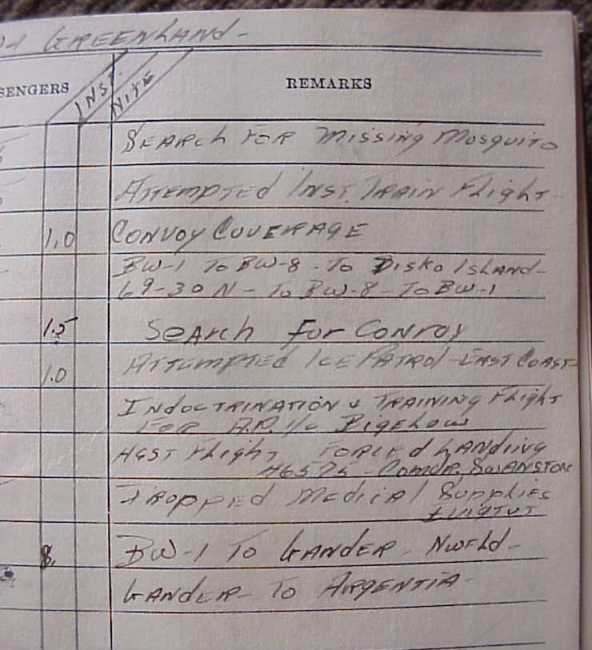 GREENLAND-
SENGERS
INST
NITE
REMARKS
SEARCH FOR MISSING MOSQUITO
ATTEMPTED INST. TRAIN FLIGHT-
1.0 CONVOY COVERAGE
BW-1 TO BW-8 - TO DISKO ISLAND-
69-30 N - TO BW-8 - TO BW-1
1.5 SEARCH FOR CONVOY
1.0 ATTEMPTED ICE PATROL - EAST COAST
INDOCTRINATION & TRAINING FLIGHT
FOR A.P. 1/C BIGELOW
FLIGHT FORCED LANDING
COMDR. SWANSTON
DROPPED MEDICAL SUPPLIES
BW-1 TO GANDER - NWFLD-
GANDER - TO ARGENTIA-